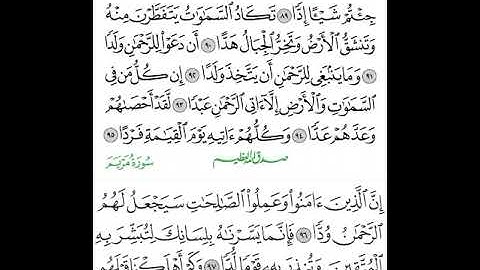 جِئْتُمْ شَيْـًٔا إِدًّا ٨٩ تَكَادُ ٱلسَّمَـٰوَٰتُ يَتَفَطَّرْنَ مِنْهُ
وَتَنشَقُّ ٱلْأَرْضُ وَتَخِرُّ ٱلْجِبَالُ هَدًّا ٩٠ أَن دَعَوْا۟ لِلرَّحْمَـٰنِ وَلَدًا
٩١ وَمَا يَنۢبَغِى لِلرَّحْمَـٰنِ أَن يَتَّخِذَ وَلَدًا ٩٢ إِن كُلُّ مَن فِى
ٱلسَّمَـٰوَٰتِ وَٱلْأَرْضِ إِلَّآ ءَاتِى ٱلرَّحْمَـٰنِ عَبْدًا ٩٣ لَّقَدْ أَحْصَىٰهُمْ
وَعَدَّهُمْ عَدًّا ٩٤ وَكُلُّهُمْ ءَاتِيهِ يَوْمَ ٱلْقِيَـٰمَةِ فَرْدًا ٩٥
صدق الله العظيم
سُورَةُ مَرْيَمَ
إِنَّ ٱلَّذِينَ ءَامَنُوا۟ وَعَمِلُوا۟ ٱلصَّـٰلِحَـٰتِ سَيَجْعَلُ لَهُمُ
ٱلرَّحْمَـٰنُ وُدًّا ٩٦ فَإِنَّمَا يَسَّرْنَـٰهُ بِلِسَانِكَ لِتُبَشِّرَ بِهِ
ٱلْمُتَّقِينَ وَتُنذِرَ بِهِۦ قَوْمًا لُّدًّا ٩٧ وَكَمْ أَهْلَكْنَا قَبْلَهُم